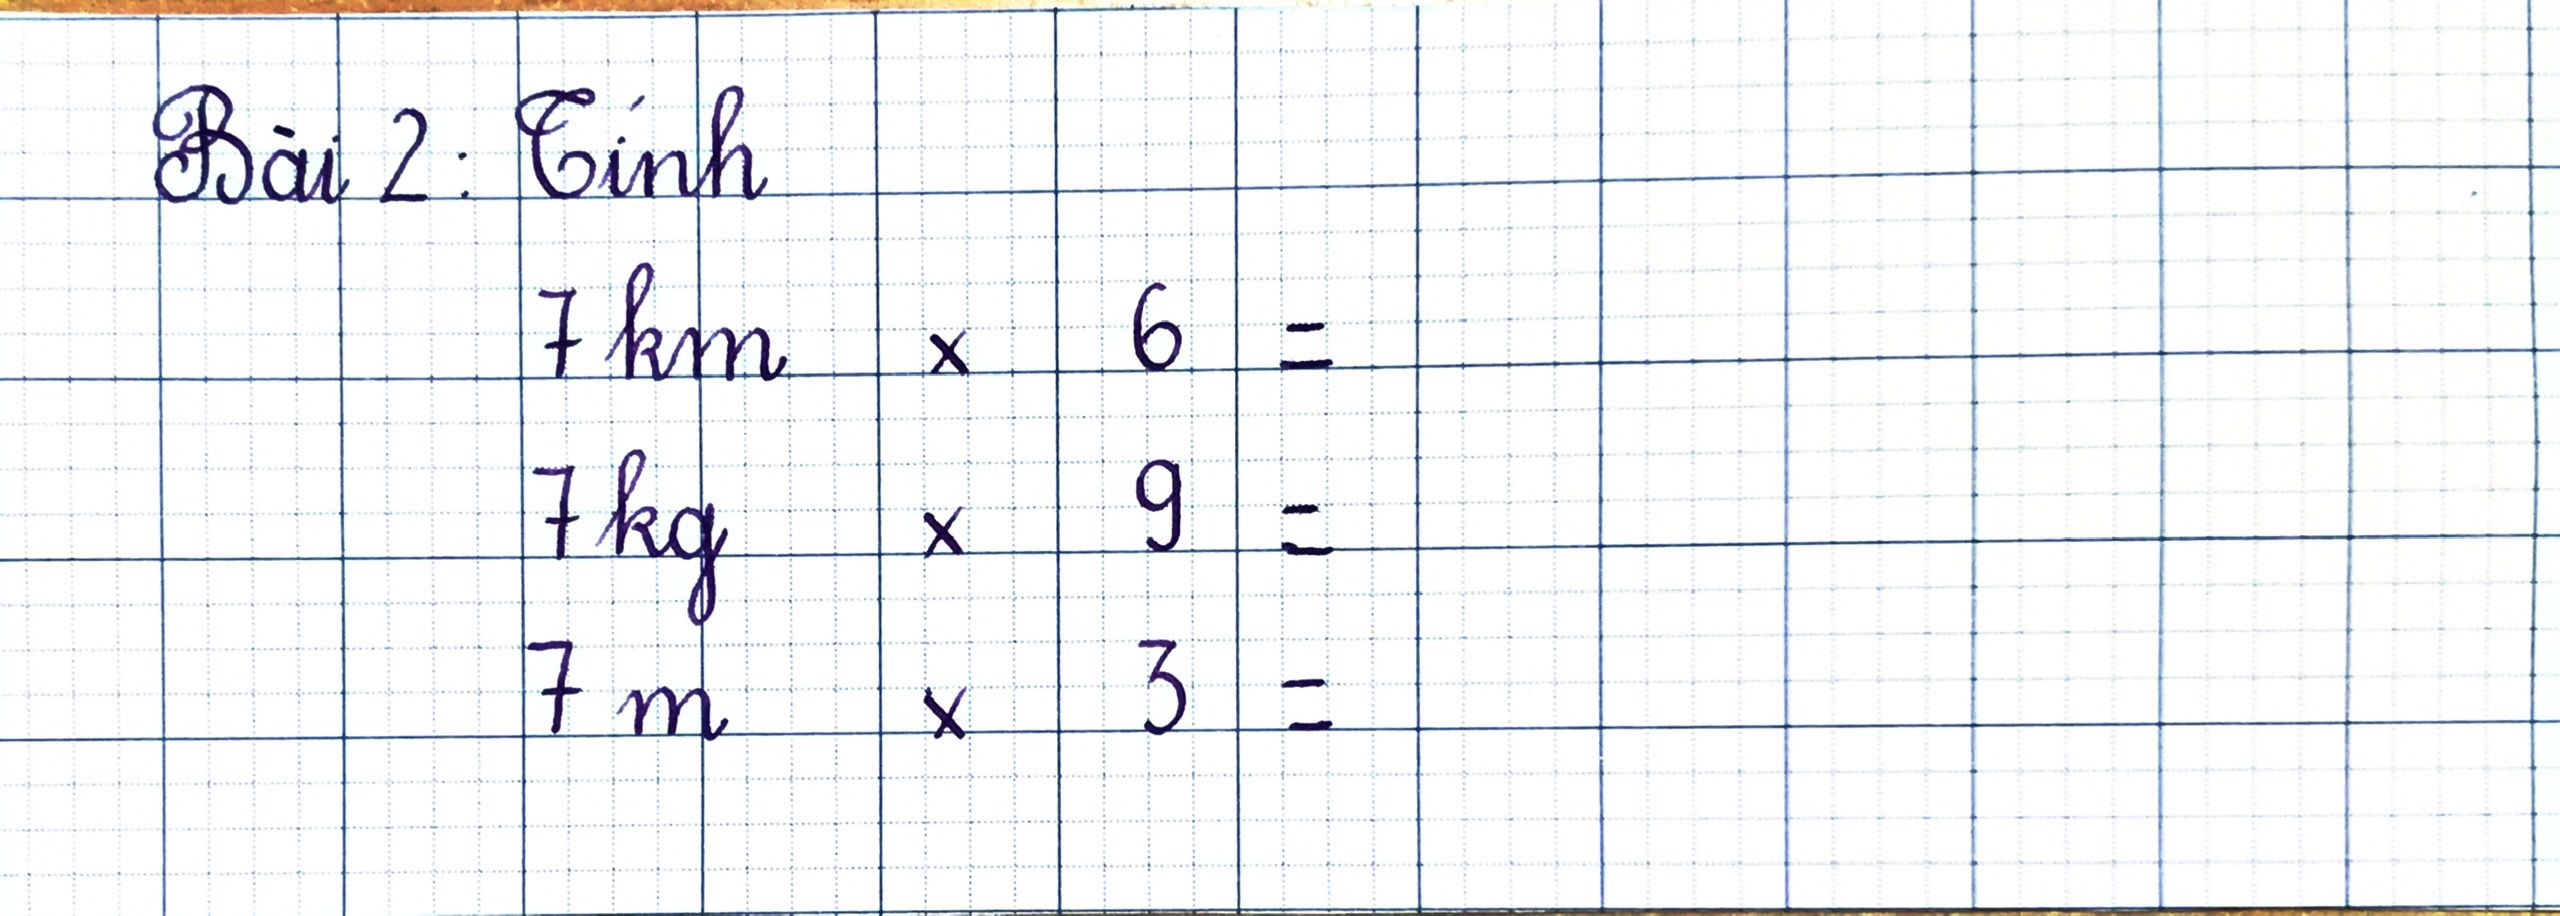 Bài 2: Tính
7 km x 6 =
7 kg x 9 =
7 m x 3 =